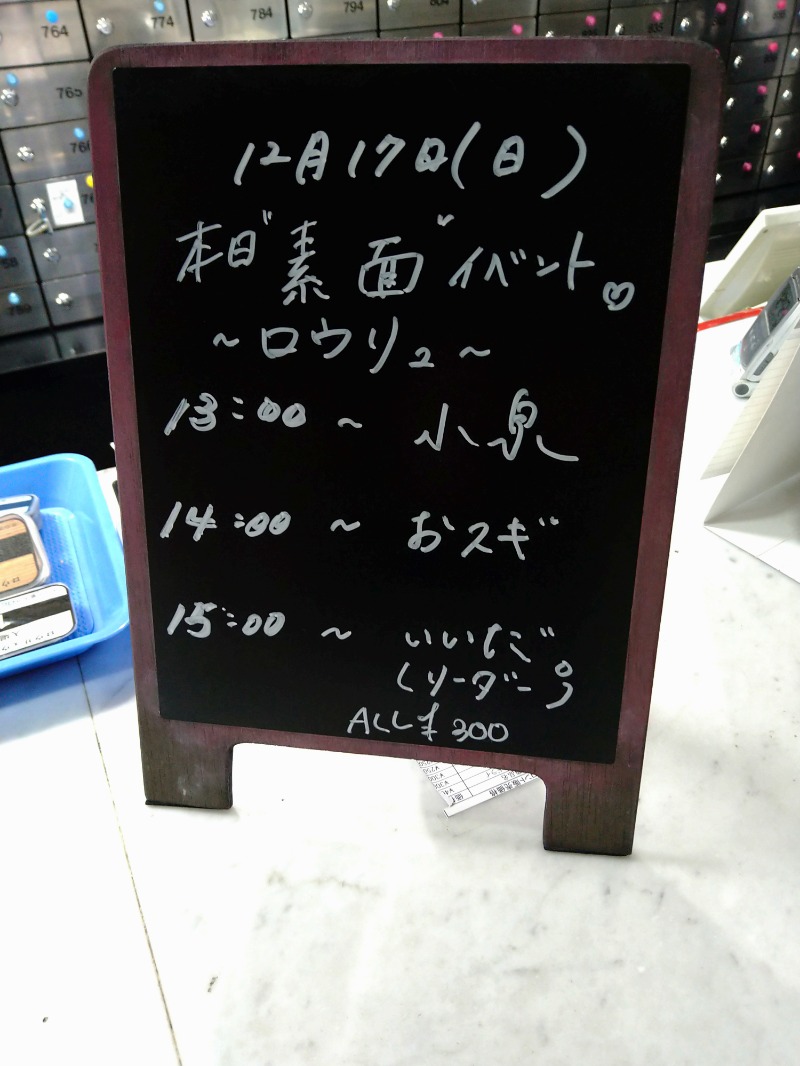 764
774
784
794
804
765
12月17日(日)
本日"素面"イベント♡
~ロウリュ~
13:00 ~ 小泉
14:00 ~ おスギ
15:00 ~ いいだ
(リーダー)
ALL ¥300